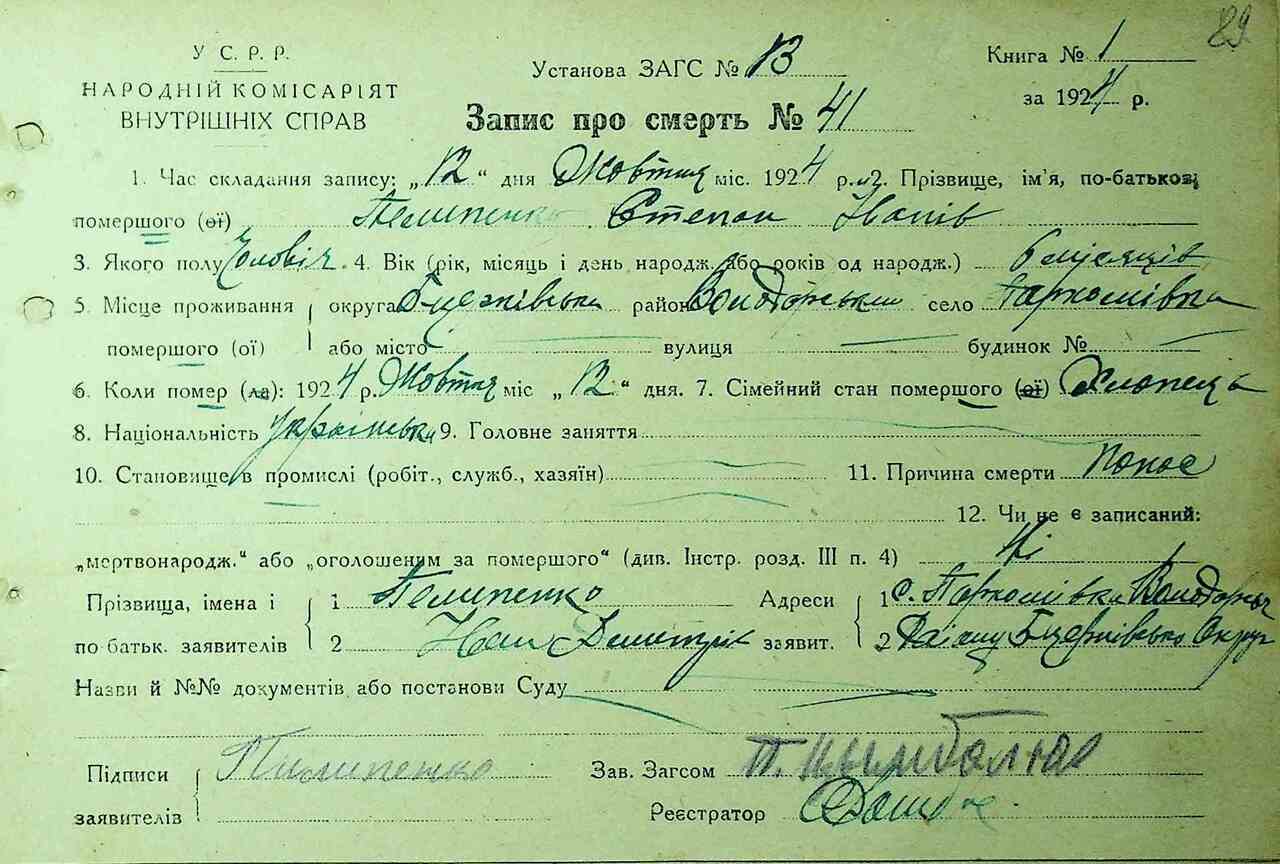 89
У С. Р. Р.
НАРОДНІЙ КОМІСАРІЯТ
ВНУТРІШНІХ СПРАВ
Установа ЗАГС № В
Книга № 1
за 1924 р.
Запис про смерть № 41
1. Час складання запису: „12“ дня Жовтня міс. 1924 р. 2. Прізвище, ім'я, по-батькові
помершого (ої) Пелипенко Степан Іванів
3. Якого полу Чоловіч. 4. Вік (рік, місяць і день народж. або років од народж.) 6 місяців
5. Місце проживання округа Бцерківська район Володарський село Пархомівка
помершого (ої) або місто вулиця будинок №
6. Коли помер (ла): 1924 р. Жовтня міс „12“ дня. 7. Сімейний стан помершого (ої) Хлопець
8. Національність Українська 9. Головне заняття
10. Становище в промислі (робіт., служб., хазяїн) 11. Причина смерти Понос
12. Чи не є записаний:
„мертвонародж.“ або „оголошеним за помершого“ (див. Інстр. розд. III п. 4) Ні
Прізвища, імена і 1 Пелипенко Адреси 1 с. Пархомівка Володарськ
по батьк. заявителів 2 Іван Дмитрів заявит. 2 Району Бцерківсько Округ
Назви й №№ документів або постанови Суду
Підписи Пилипенко Зав. Загсом П.
заявителів Реєстратор